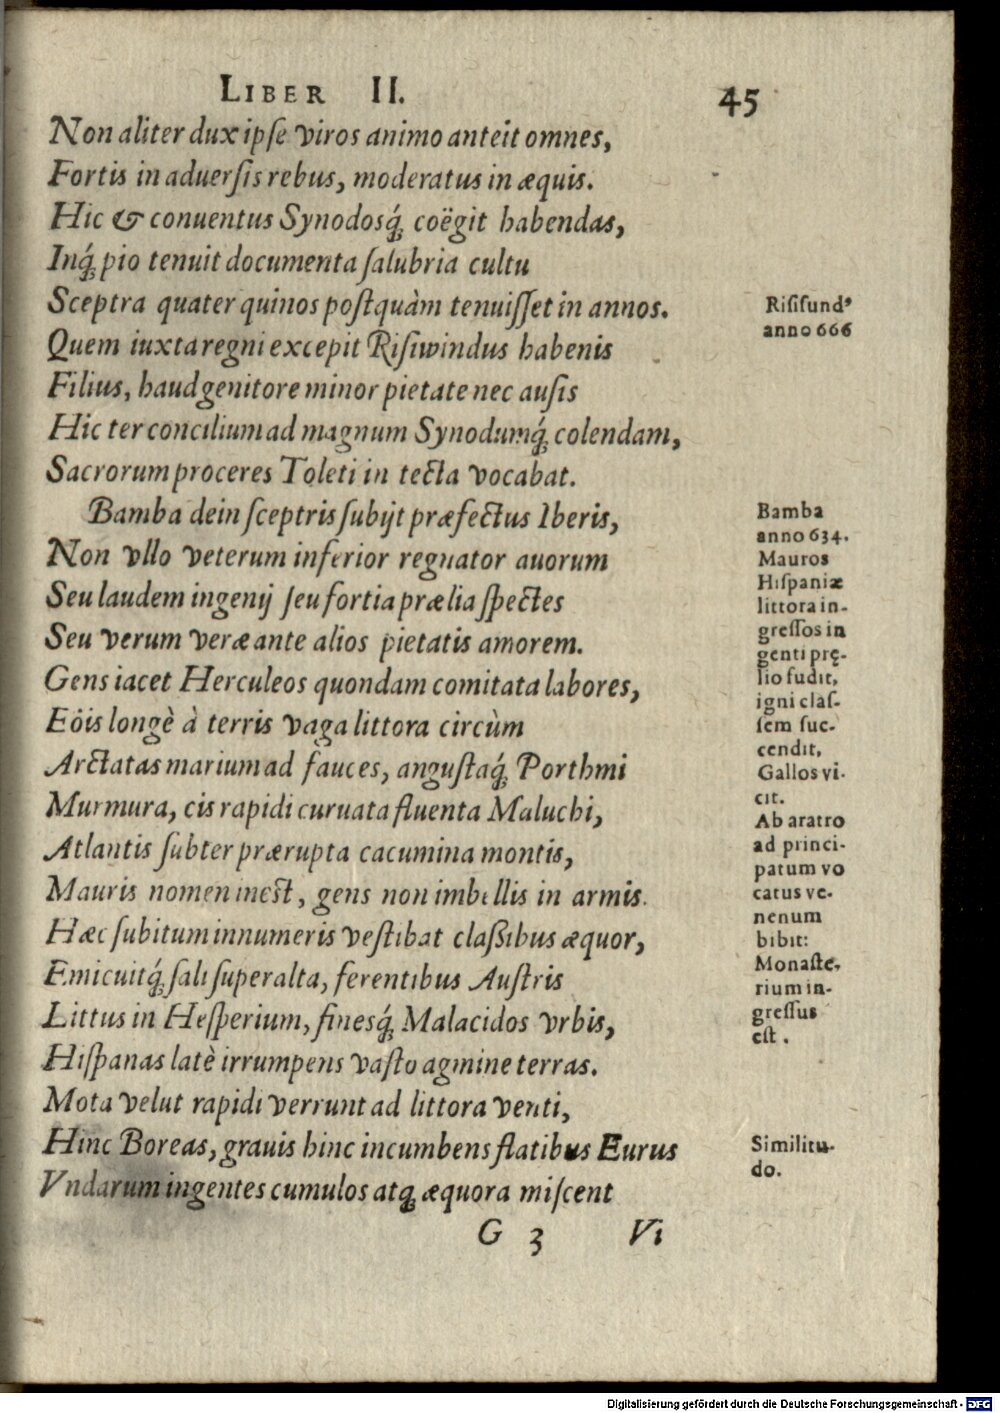 LIBER II. 45
Non aliter dux ipſe viros animo anteit omnes,
Fortis in aduerſis rebus, moderatus in æquis.
Hic & conuentus Synodosq́; coëgit habendas,
Inq́; pio tenuit documenta ſalubria cultu
Sceptra quater quinos poſtquàm tenuiſſet in annos.
Quem iuxta regni excepit Riſiwindus habenis
Filius, haud genitore minor pietate nec auſis
Hic ter concilium ad magnum Synodumq́; colendam,
Sacrorum proceres Toleti in tecta vocabat.
Bamba dein ſceptris ſubijt præfectus Iberis,
Non vllo veterum inferior regnator auorum
Seu laudem ingenij ſeu fortia prælia ſpectes
Seu verum veræ ante alios pietatis amorem.
Gens iacet Herculeos quondam comitata labores,
Eöis longè à terris vaga littora circùm
Arctatas marium ad fauces, anguſtaq́; Porthmi
Murmura, cis rapidi curuata fluenta Maluchi,
Atlantis ſubter prærupta cacumina montis,
Mauris nomen ineſt, gens non imbellis in armis.
Hæc ſubitum innumeris veſtibat claßibus æquor,
Emicuitq́; ſali ſuper alta, ferentibus Auſtris
Littus in Heſperium, fineſq́; Malacidos vrbis,
Hiſpanas latè irrumpens vaſto agmine terras.
Mota velut rapidi verrunt ad littora venti,
Hinc Boreas, grauis hinc incumbens flatibus Eurus
Vndarum ingentes cumulos atq; æquora miſcent
G 3 Vi
Riſiſundꝰ
anno 666
Bamba
anno 634.
Mauros
Hiſpaniæ
littora in-
greſſos in
genti prę-
lio fudit,
igni claſ-
ſem ſuc-
cendit,
Gallos vi-
cit.
Ab aratro
ad princi-
patum vo
catus ve-
nenum
bibit:
Monaſte-
rium in-
greſſus
eſt.
Similitu-
do.
Digitalisierung gefördert durch die Deutsche Forschungsgemeinschaft - DFG